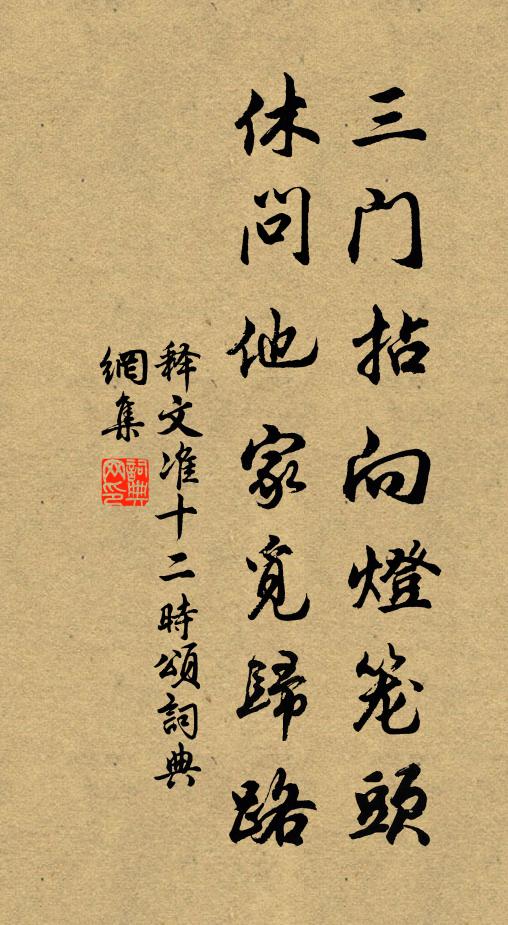 三门拈向燈笼頭
休问他家覓歸路
释文准十二時頌詞典
網集
詞典网印